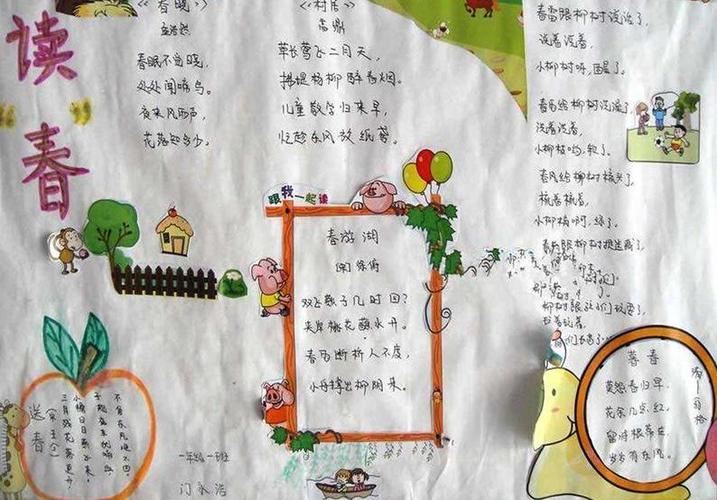 读春
《春晓》
孟浩然
春眠不觉晓,
处处闻啼鸟。
夜来风雨声,
花落知多少。
《村居》
高鼎
草长莺飞二月天,
拂堤杨柳醉春烟。
儿童散学归来早,
忙趁东风放纸鸢。
春雷跟柳树说话了,
说着说着,
小柳树呀,醒了。
春雨给柳树洗澡了,
洗着洗着,
小柳树哟,软了。
春风给柳树梳头了,
梳着梳着,
小柳树啊,绿了。
春燕跟柳树捉迷藏了,
跟我一起读
春游湖
徐俯
双飞燕子几时回?
夹岸桃花蘸水开。
春雨断桥人不度,
小舟撑出柳阴来。
送春
三月残花落更开,
小檐日日燕飞来。
子规夜半犹啼血,
不信东风唤不回。
暮春
莫怨春归早,
花余几点红。
留将根蒂在,
岁岁有东风。
一年级一班